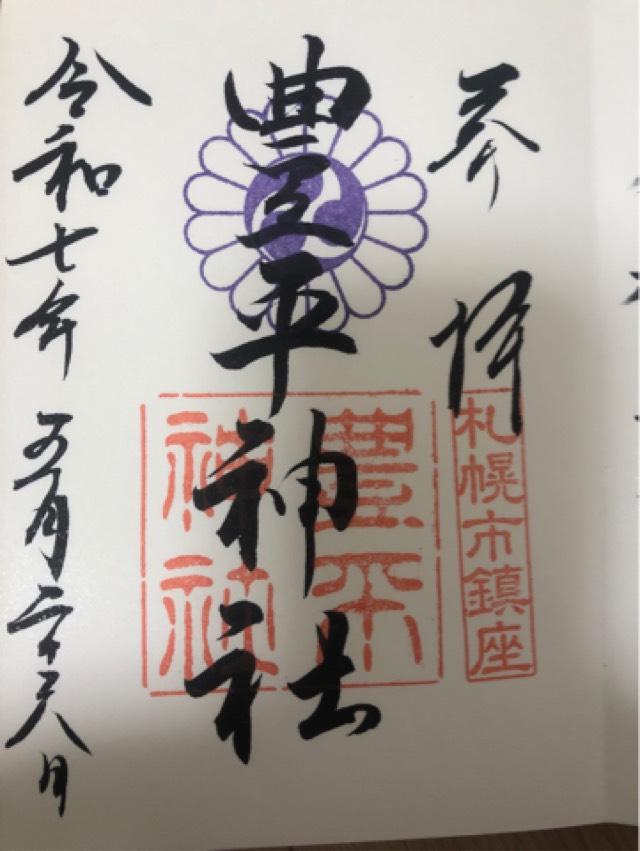 奉拝
札幌市鎮座
豊平神社
豊平
神社
令和七年五月二十六日